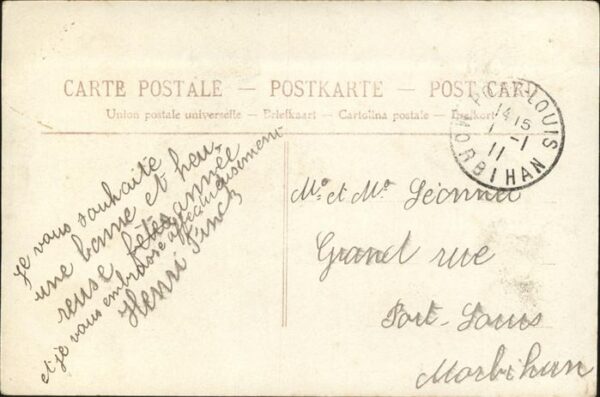 CARTE POSTALE — POSTKARTE — POST CARD
Union postale universelle — Briefkaart — Cartolina postale — Brefkort
PORT-LOUIS
14 15
1 -1
11
MORBIHAN
je vous souhaite
une bonne et heu-
reuse année
et je vous embrasse affectueusement
Henri
Mr et Me
Grand rue
Port-Louis
Morbihan